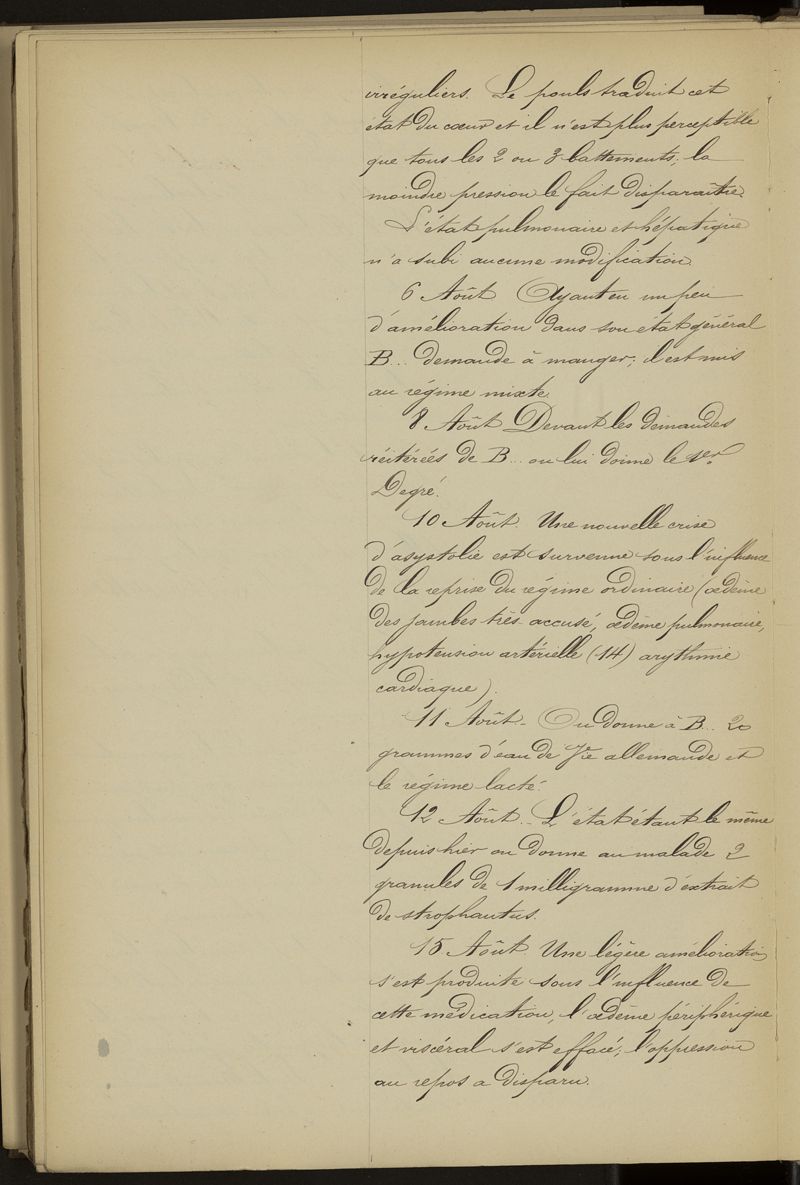 irréguliers. Le pouls traduit cet
état du cœur et il n'est plus perceptible
que tous les 2 ou 3 battements; la
moindre pression le fait disparaître.
L'état pulmonaire et hépatique
n'a subi aucune modification.
6 Août Ayant eu un peu
d'amélioration dans son état général
B... demande à manger; il est mis
au régime mixte.
8 Août Devant les demandes
réitérées de B... on lui donne le 1er
Degré.
10 Août. Une nouvelle crise
d'asystolie est survenue sous l'influence
de la reprise du régime ordinaire (œdème
des jambes très-accusé, œdème pulmonaire,
hypotension artérielle (14) arythmie
cardiaque).
11 Août - On donne à B... 20
grammes d'eau de Vie allemande et
le régime lacté.
12 Août. - L'état étant le même
depuis hier on donne au malade 2
granulés de 1 milligramme d'extrait
de strophantus.
15 Août. Une légère amélioration
s'est produite sous l'influence de
cette médication, l'œdème périphérique
et viscéral s'est effacé; l'oppression
au repos a disparu.